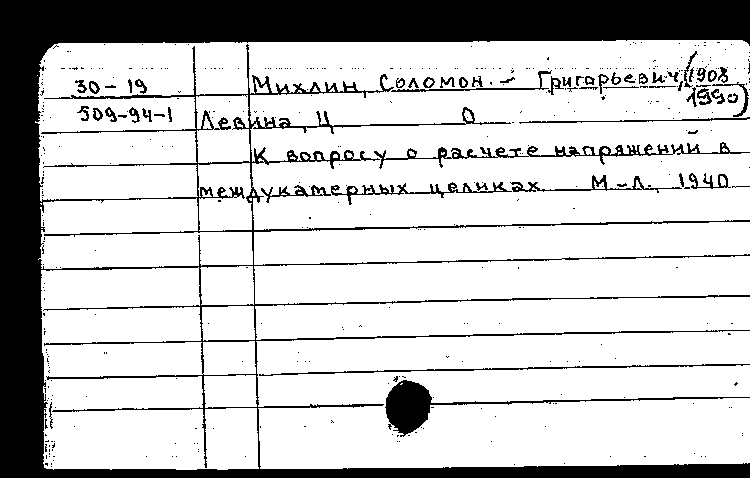 30-19 Михлин, Соломон. - Григарьевич, (1908
1990)
509-94-1 Левина, Ц О
К вопросу о расчете напряжений в
междукамерных целиках М-Л., 1940